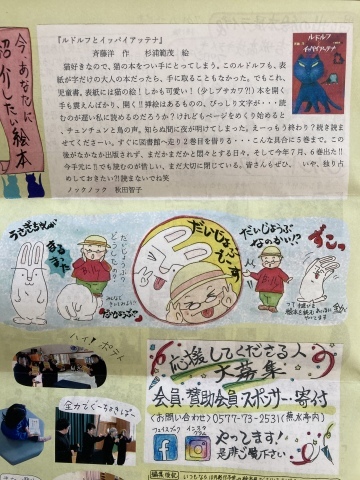 今あなたに
紹介したい絵本
『ルドルフとイッパイアッテナ』
斉藤洋 作　杉浦範茂 絵
猫好きなので、猫の本をつい手にとってしまう。このルドルフも、表
紙が字だけの大人の本だったら、手に取ることもなかった。でもこれ、
児童書。表紙には猫の絵！しかも可愛い！（少しブサカワ?!）本を開く
手も震えんばかり、開く!!挿絵はあるものの、びっしり文字が・・読
むのが遅い私に読めるのだろうか？けれどもページをめくり始めると
、チュンチュンと鳥の声。知らぬ間に夜が明けてしまった。えーっもう終わり？続き読ま
せてくださーい。すぐに図書館へ走り２巻目を借りる・・こんな具合に５巻まで。この
後がなかなか出版されず、まだかまだかと悶々とする日々。そして今年７月、６巻出た!!
今手元に!!でも読むのが惜しい、まだ大切に閉じている。皆さんもぜひ、いや、独り占
めしておきたい!!読まないでね笑
ノックノック　秋田智子
うさぎちゃんが
まるまった
だいじょうぶ？
どうしたの？
だいじょうぶ
でーす
だいじょうぶ
なのかい!?
ずこっ
ハイ！ポテト
全力でぐーちょきぱー
応援してくださる人
大募集
会員・賛助会員・スポンサー・寄付
〈お問い合わせ〉0577-73-2531(無水亭内)
フェイスブック
インスタグラム
やってます!
是非ご覧下さい。
編集後記